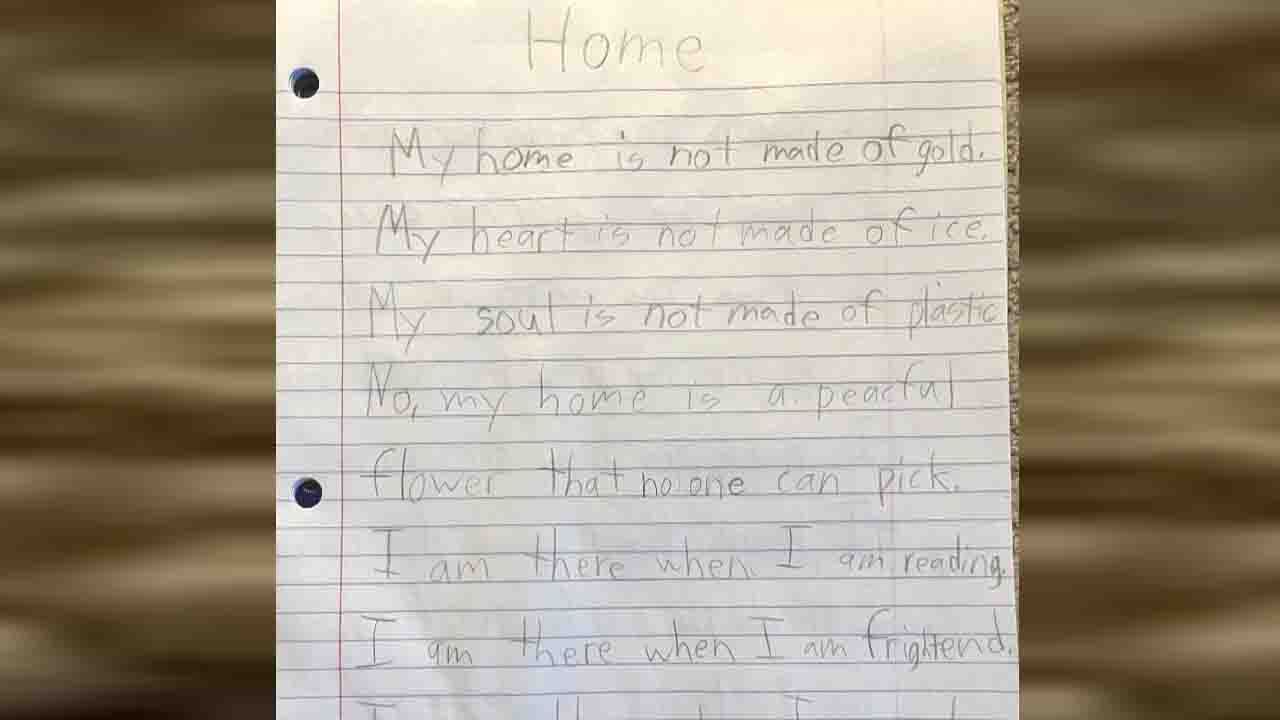 Home
My home is not made of gold.
My heart is not made of ice.
My soul is not made of plastic
No, my home is a peacful
flower that no one can pick.
I am there when I am reading.
I am there when I am frightend.